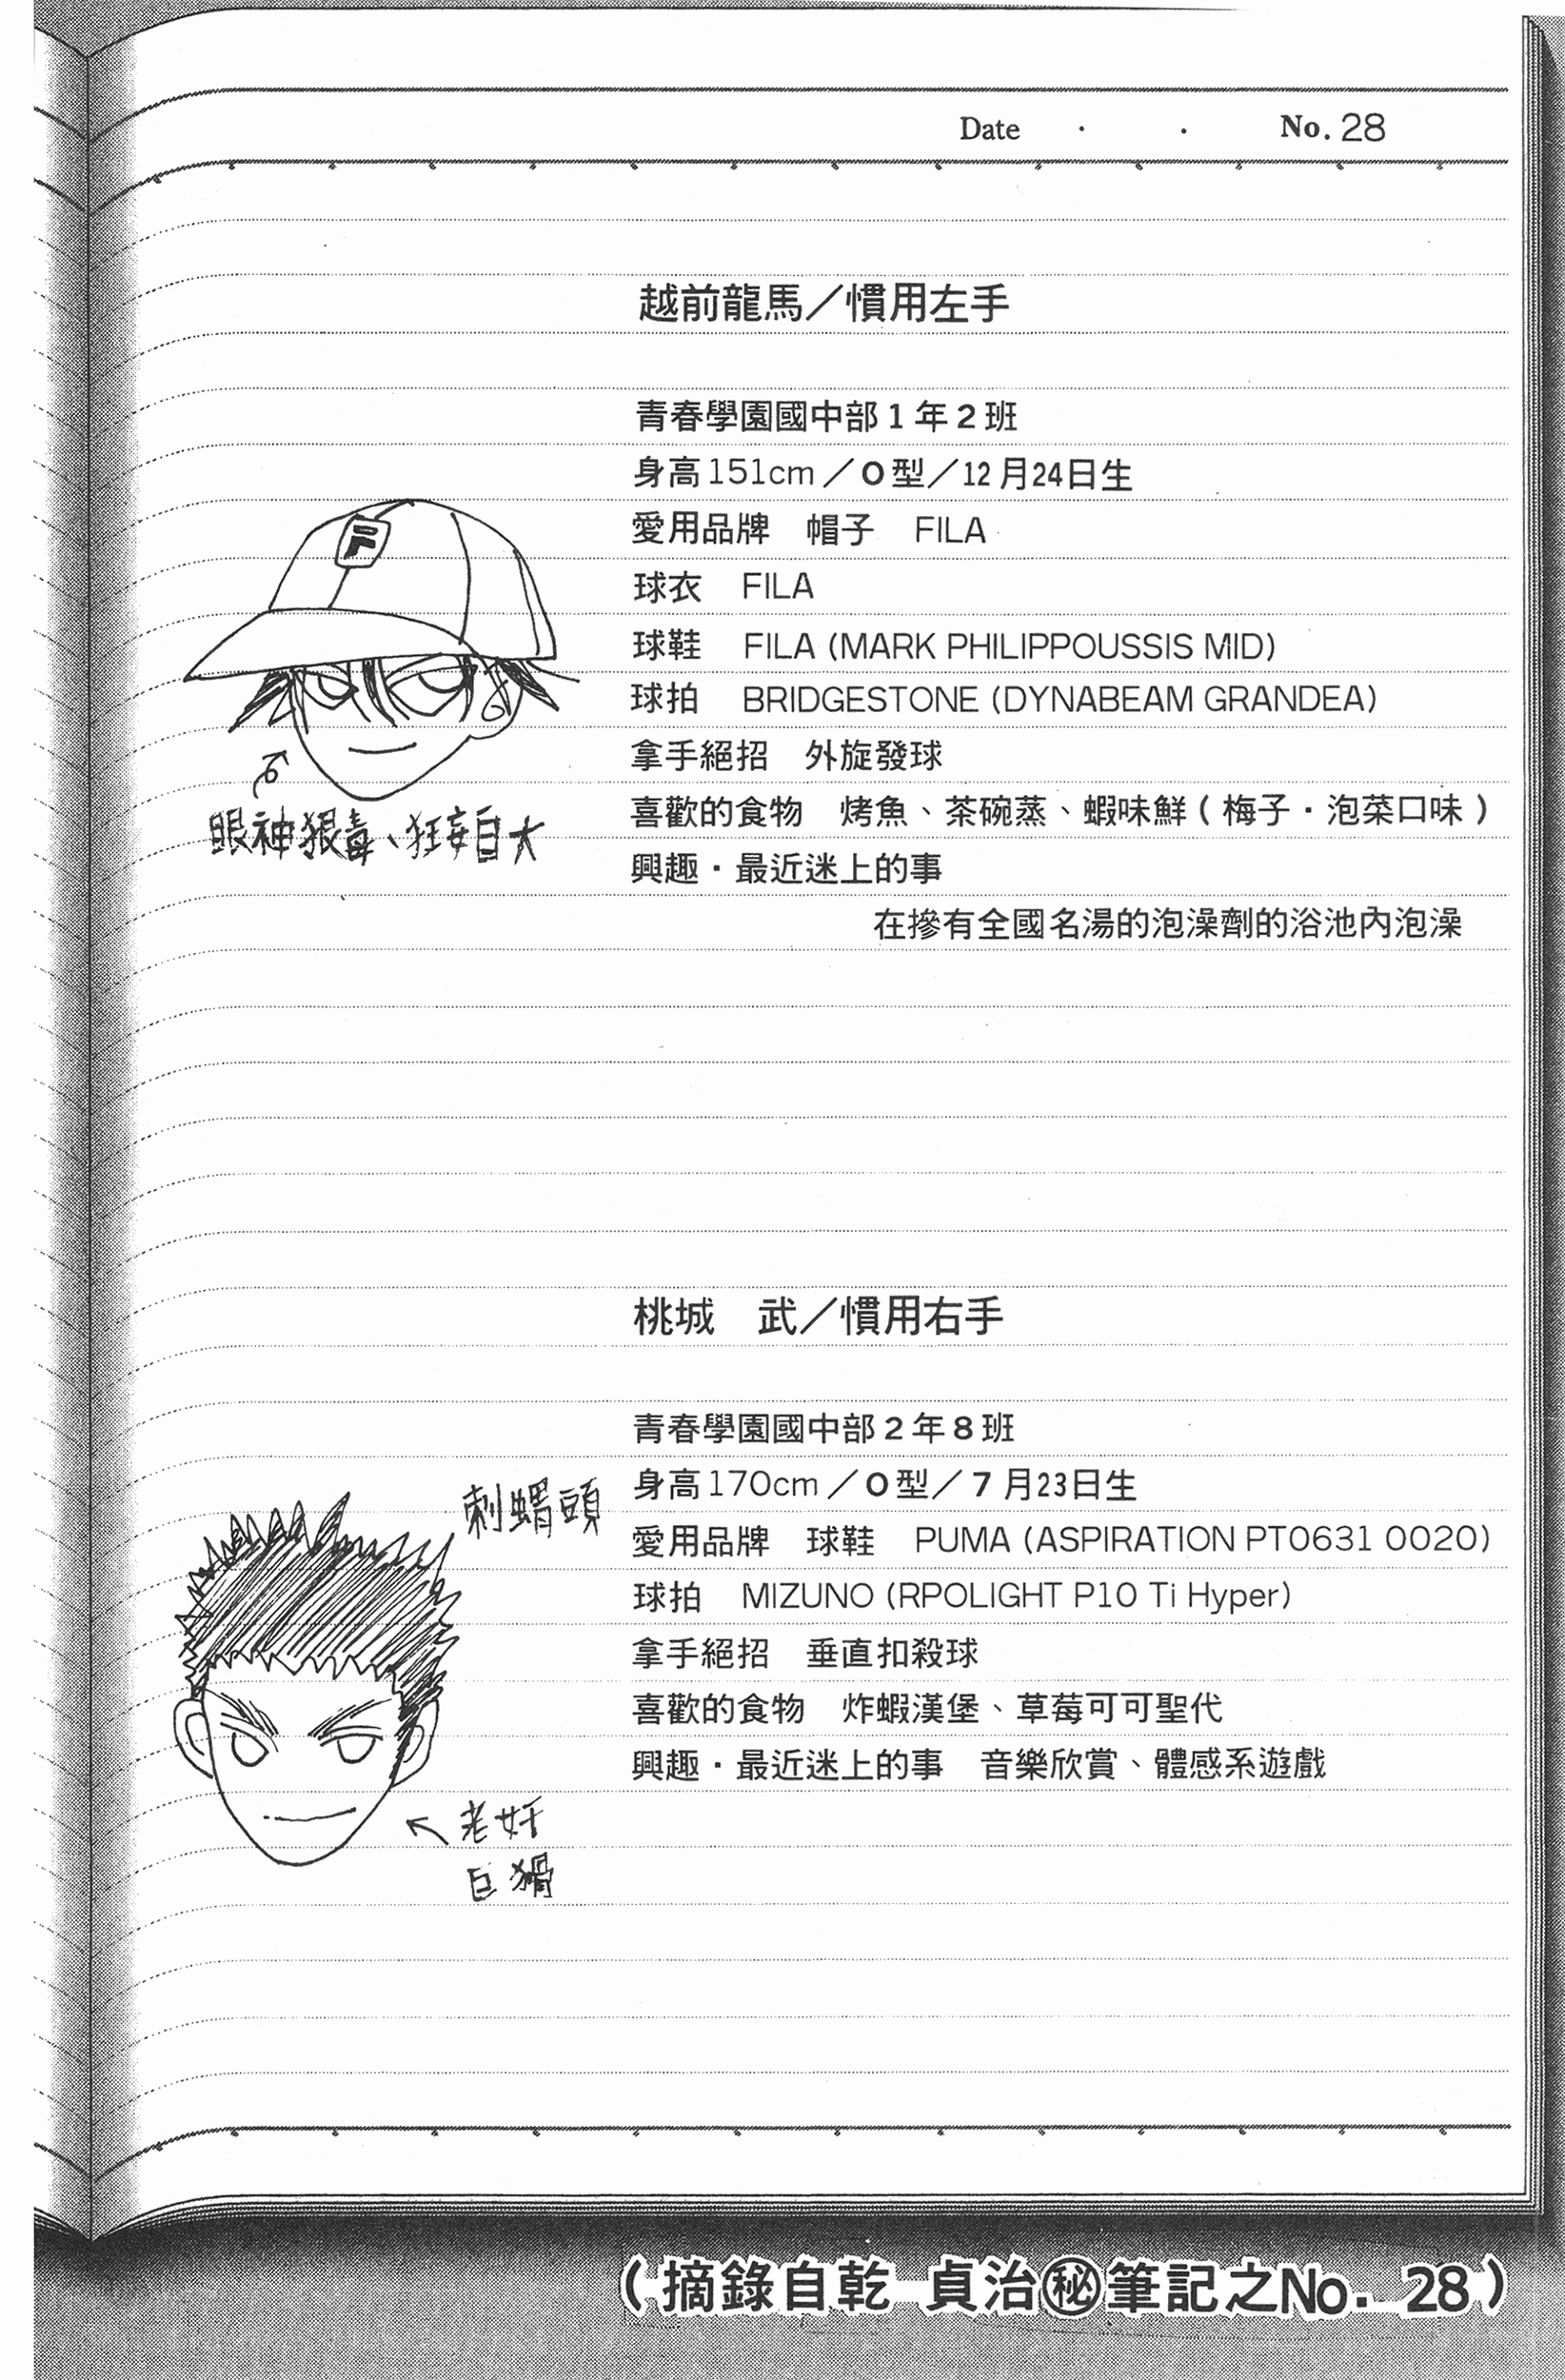 Date . . No. 28
越前龍馬／慣用左手
青春學園國中部1年2班
身高151cm／O型／12月24日生
愛用品牌 帽子 FILA
球衣 FILA
球鞋 FILA (MARK PHILIPPOUSSIS MID)
球拍 BRIDGESTONE (DYNABEAM GRANDEA)
拿手絕招 外旋發球
喜歡的食物 烤魚、茶碗蒸、蝦味鮮(梅子・泡菜口味)
興趣・最近迷上的事
在摻有全國名湯的泡澡劑的浴池內泡澡
F
眼神狠毒、狂妄自大
桃城 武／慣用右手
青春學園國中部2年8班
身高170cm／O型／7月23日生
愛用品牌 球鞋 PUMA (ASPIRATION PT0631 0020)
球拍 MIZUNO (RPOLIGHT P10 Ti Hyper)
拿手絕招 垂直扣殺球
喜歡的食物 炸蝦漢堡、草莓可可聖代
興趣・最近迷上的事 音樂欣賞、體感系遊戲
刺蝟頭
老奸
巨猾
(摘錄自乾 貞治㊙筆記之No. 28)